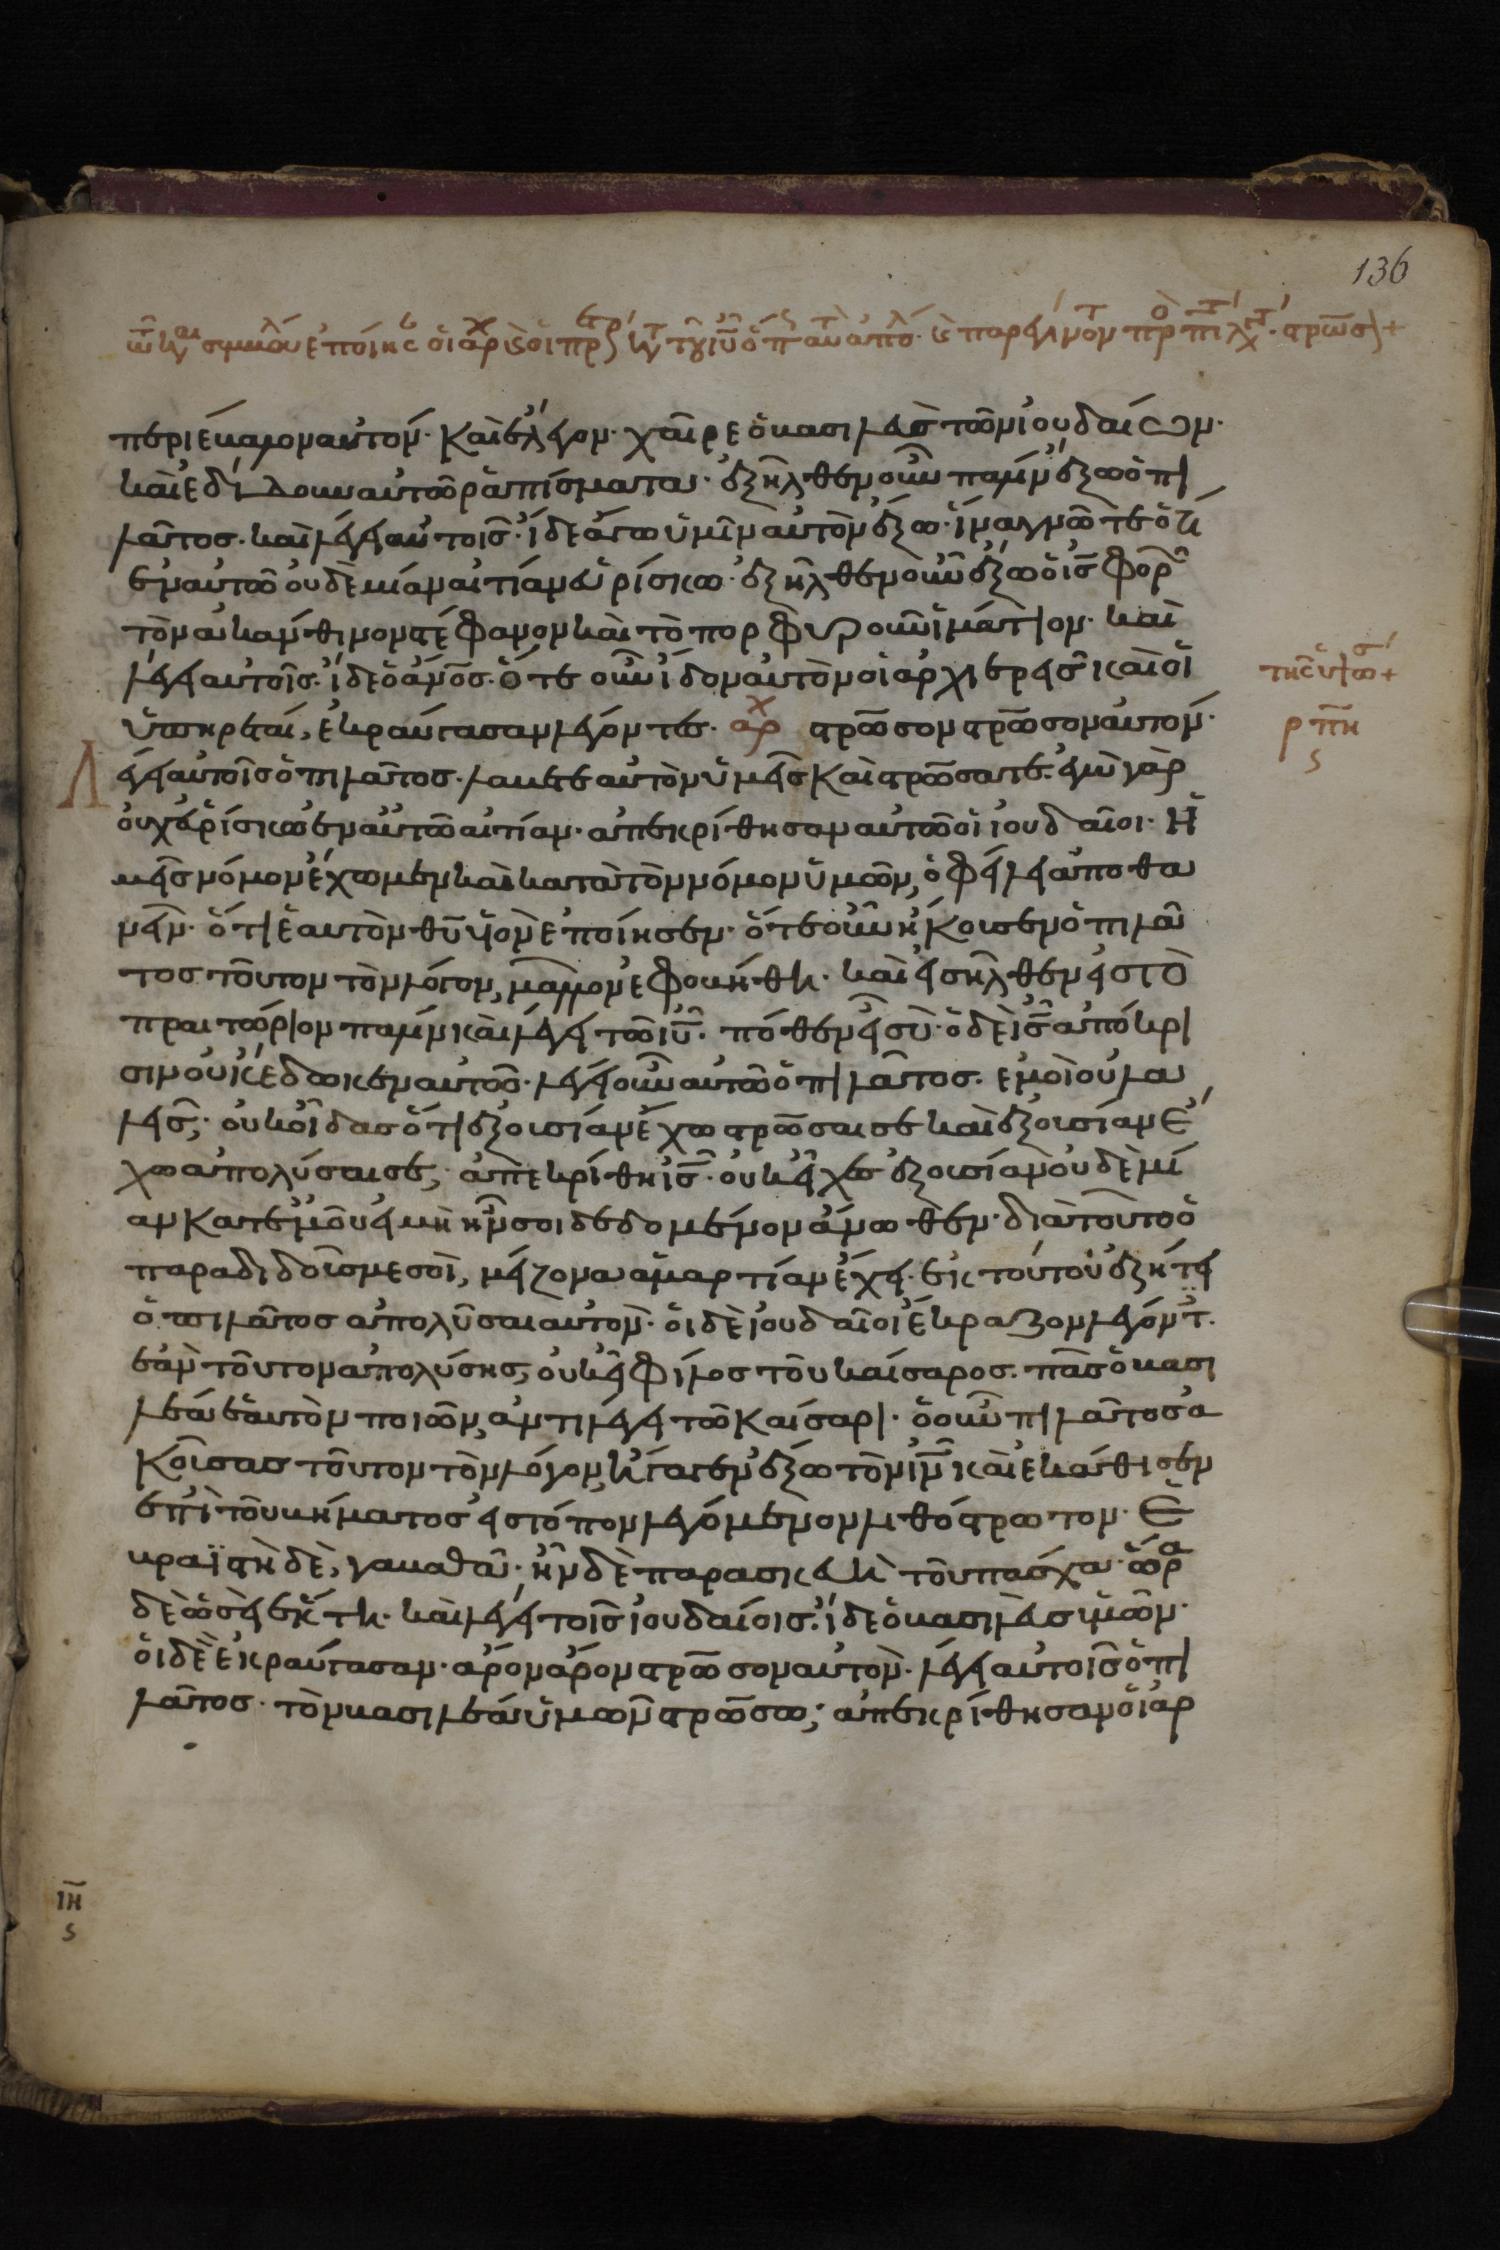 136
περιέβαλον αὐτόν· καὶ ἔλεγον· χαῖρε ὁ βασιλεὺς τῶν ἰουδαίων·
καὶ ἐδίδουν αὐτῶ ῥαπίσματα· ἐξῆλθεν οὖν πάλιν ἔξω ὁ πι
λᾶτος. καὶ λέγει αὐτοῖς· ἴδε ἄγω ὑμῖν αὐτὸν ἔξω· ἵνα γνῶτε ὅτι
ἐν αὐτῶ οὐδὲ μίαν αἰτίαν εὑρίσκω· ἐξῆλθεν οὖν ἔξω ὁ ι̅ς̅ φορῶ
τὸν ἀκάνθινον στέφανον καὶ τὸ πορφυροῦν ἱμάτιον· καὶ
λέγει αὐτοῖς· ἴδε ὁ ἄν̅ο̅ς̅. ὅτε οὖν ἴδον αὐτὸν οἱ ἀρχιερεῖς καὶ οἱ
ὑπηρέται, ἐκραύγασαν λέγοντες· αρχ στρ̅ωσον στρ̅ωσον αὐτόν·
Λέγει αὐτοῖς ὁ πιλᾶτος· λάβετε αὐτὸν ὑμεῖς καὶ στρ̅ώσατε· ἐγὼ γὰρ
οὐχ εὑρίσκω ἐν αὐτῶ αἰτίαν· ἀπεκρίθησαν αὐτῶ οἱ ἰουδαῖοι· Ἡ
μεῖς νόμον ἔχωμεν καὶ κατὰ τὸν νόμον ὑμῶν, ὀφείλει ἀποθα
νεῖν· ὅτι ἑαυτὸν θ̅υ̅ υἱὸν ἐποίησεν· ὅτε οὖν ἤκουσεν ὁ πιλᾶ
τος τοῦτον τὸν λόγον, μᾶλλον ἐφοβήθη· καὶ εἰσῆλθεν εἰς τὸ
πραιτώριον πάλιν καὶ λέγει τῶ ι̅υ̅· πόθεν εἶ σὺ· ὁ δὲ ι̅ς̅ ἀπόκρι
σιν οὐκ ἔδωκεν αὐτῶ· λέγει οὖν αὐτῶ ὁ πιλᾶτος· ἐμοὶ οὐ λα
λεῖς; οὐκ οἶδας ὅτι ἐξουσίαν ἔχω στρ̅ῶσαι σε καὶ ἐξουσίαν ἔ
χω ἀπολύσαι σε; ἀπεκρίθη ι̅ς̅· οὐκ εἶχες ἐξουσίαν οὐδὲ μί
αν κατ ἐμοῦ εἰ μὴ ἦν σοι δεδομένον ἄνωθεν· διὰ τοῦτο ὁ
παραδιδούς με σοὶ, μείζονα ἁμαρτίαν ἔχει· ἐκ τούτου ἐζήτει
ὁ πιλᾶτος ἀπολῦσαι αὐτόν· οἱ δὲ ἰουδαῖοι ἔκραζον λέγοντ.
ἐὰν τοῦτον ἀπολύσης, οὐκ εἶ φίλος τοῦ καίσαρος. πᾶς ὁ βασι
λέα ἑαυτὸν ποιῶν, ἀντιλέγει τῶ καίσαρι· ὁ οὖν πιλᾶτος ἀ
κούσας τοῦτον τὸν λόγον, ἤγαγεν ἔξω τὸν ι̅ν̅ καὶ ἐκάθισεν
ἐπὶ τοῦ βήματος εἰς τόπον λεγόμενον λιθόστρωτον· Ἑ
βραϊστὴ δὲ, γαβαθᾶ· ἦν δὲ παρασκευὴ τοῦ πάσχα· ὥρα
δὲ ὡσεὶ ἕκτη· καὶ λέγει τοῖς ἰουδαίοις· ἴδε ὁ βασιλεὺς ὑμῶν·
οἱ δὲ ἐκραύγασαν· ἆρον ἆρον στρ̅ωσον αὐτόν· λέγει αὐτοῖς ὁ πι
λᾶτος· τὸν βασιλέα ὑμῶν στρ̅ώσω; ἀπεκρίθησαν οἱ ἀρ